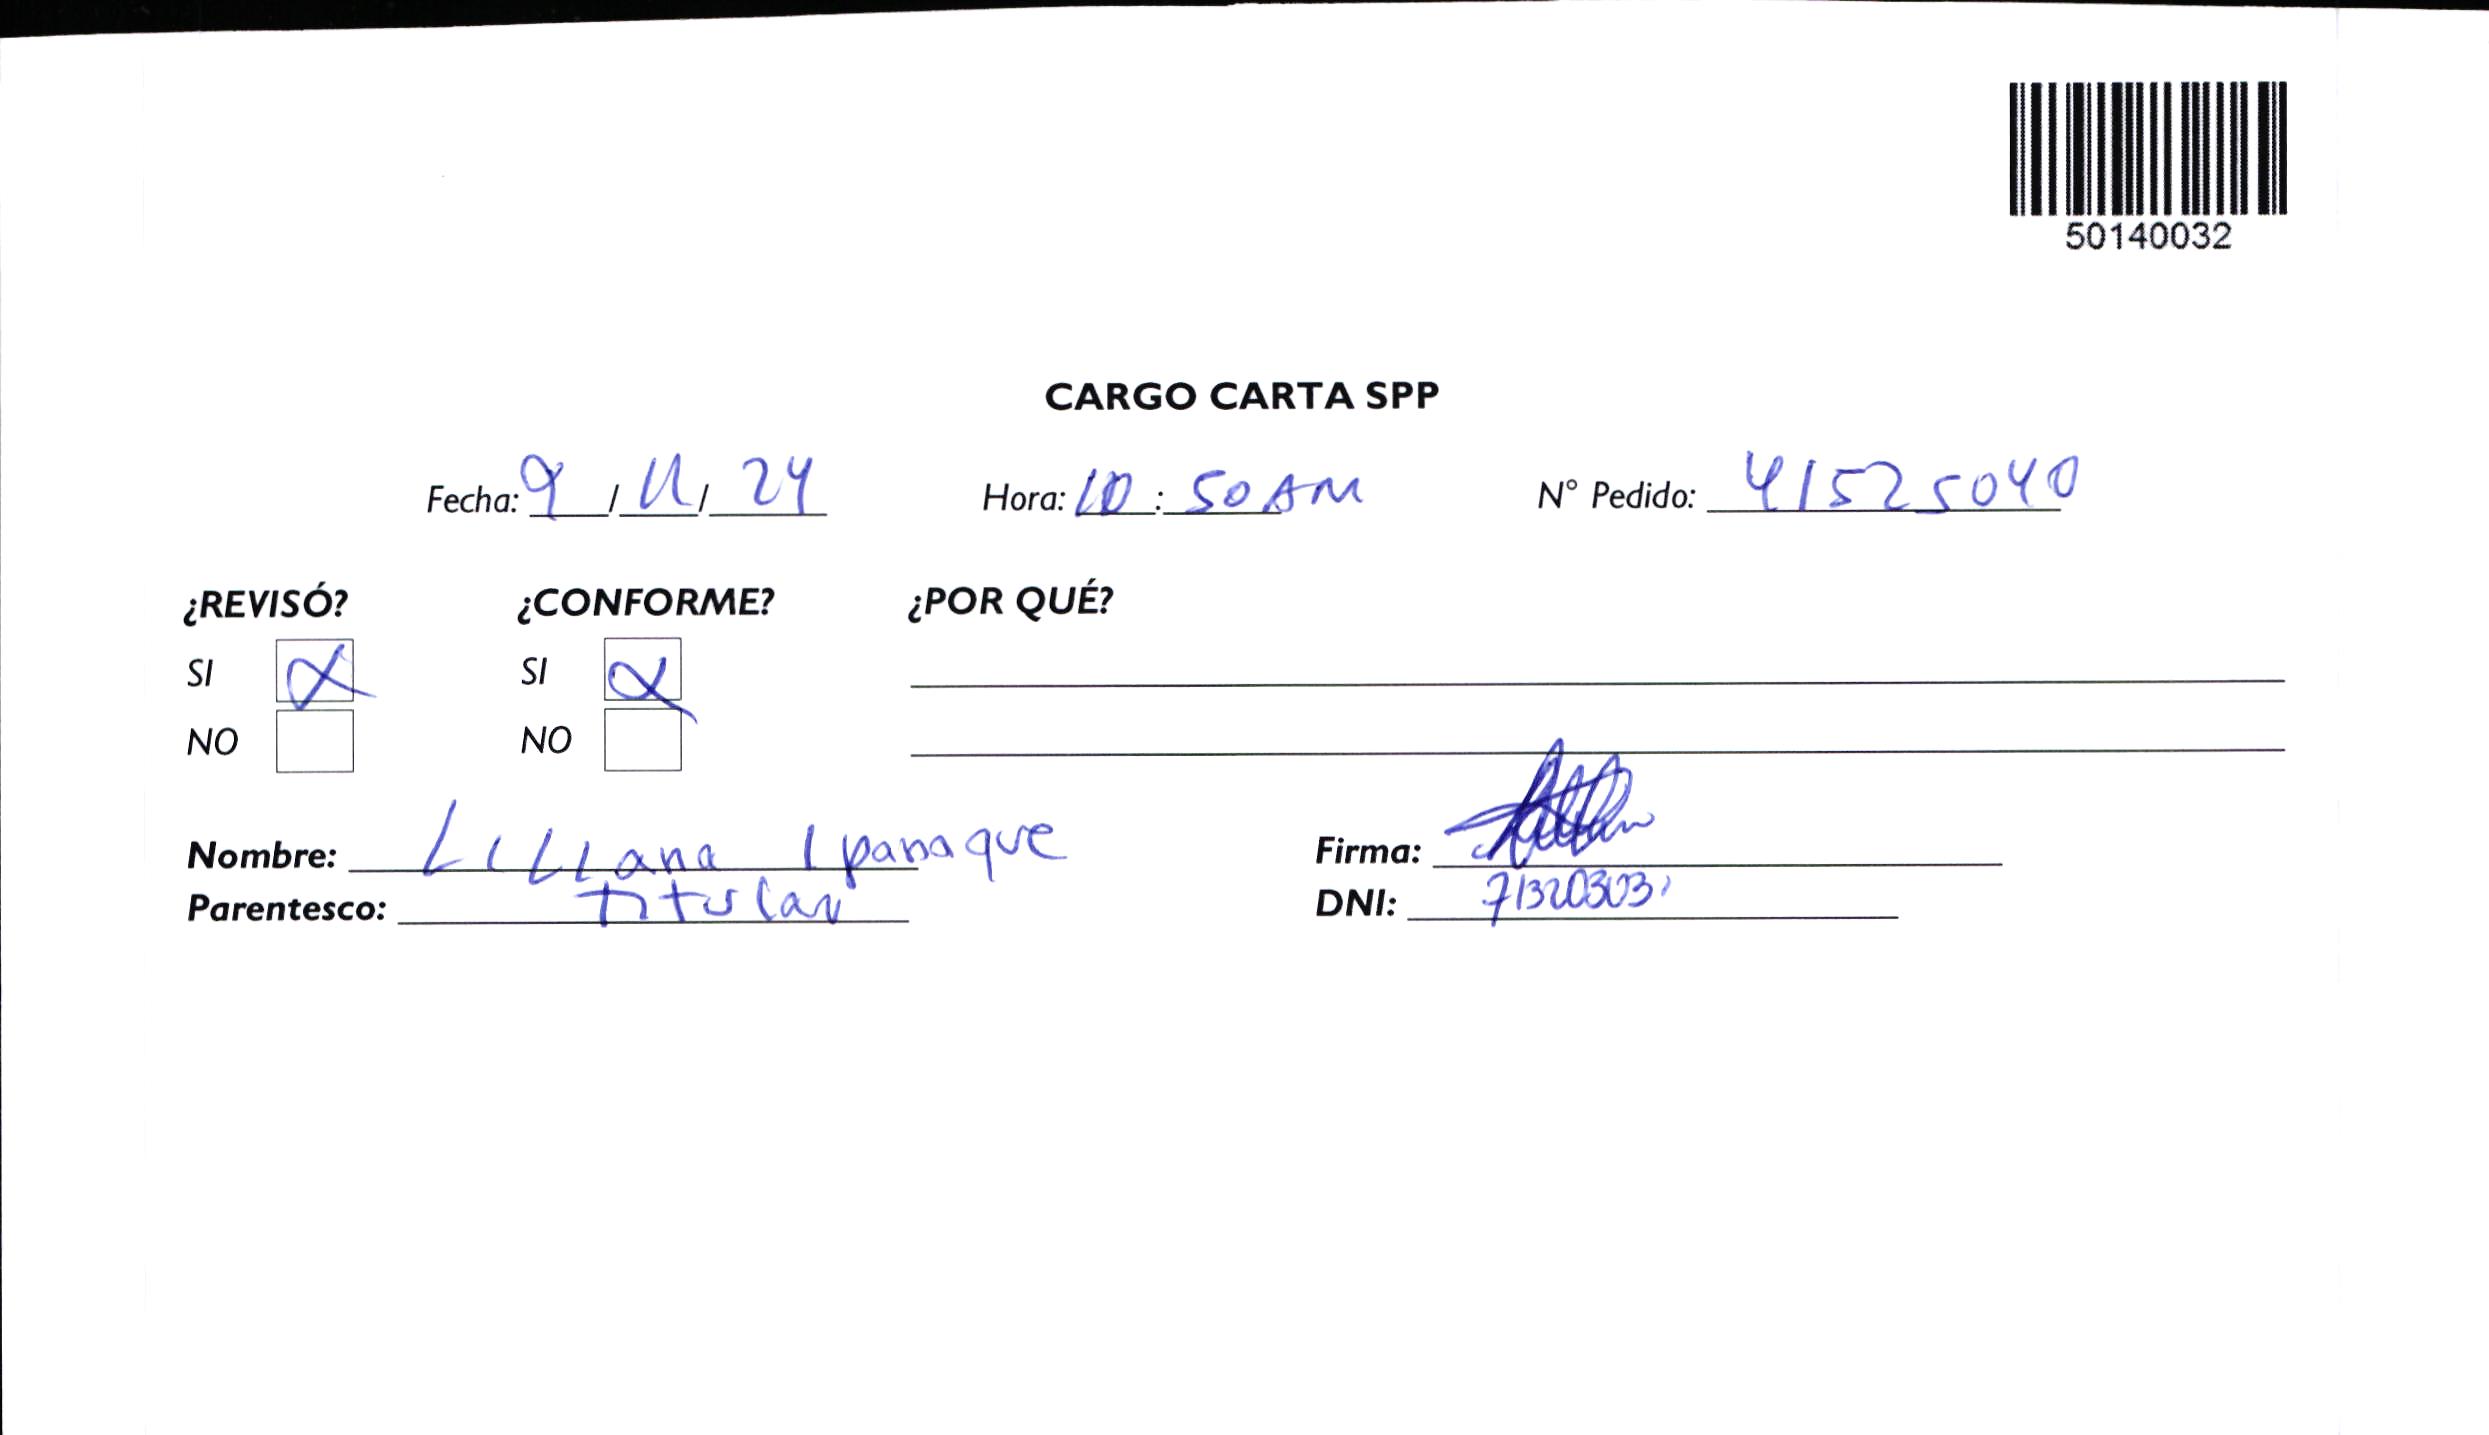 50140032
CARGO CARTA SPP
Fecha: 9 / 11 / 24 Hora: 10 : 50 AM N° Pedido: 41525040
¿REVISÓ? ¿CONFORME? ¿POR QUÉ?
SI X SI X
NO NO
Nombre: LILIana Ipanaque Firma:
Parentesco: Titular DNI: